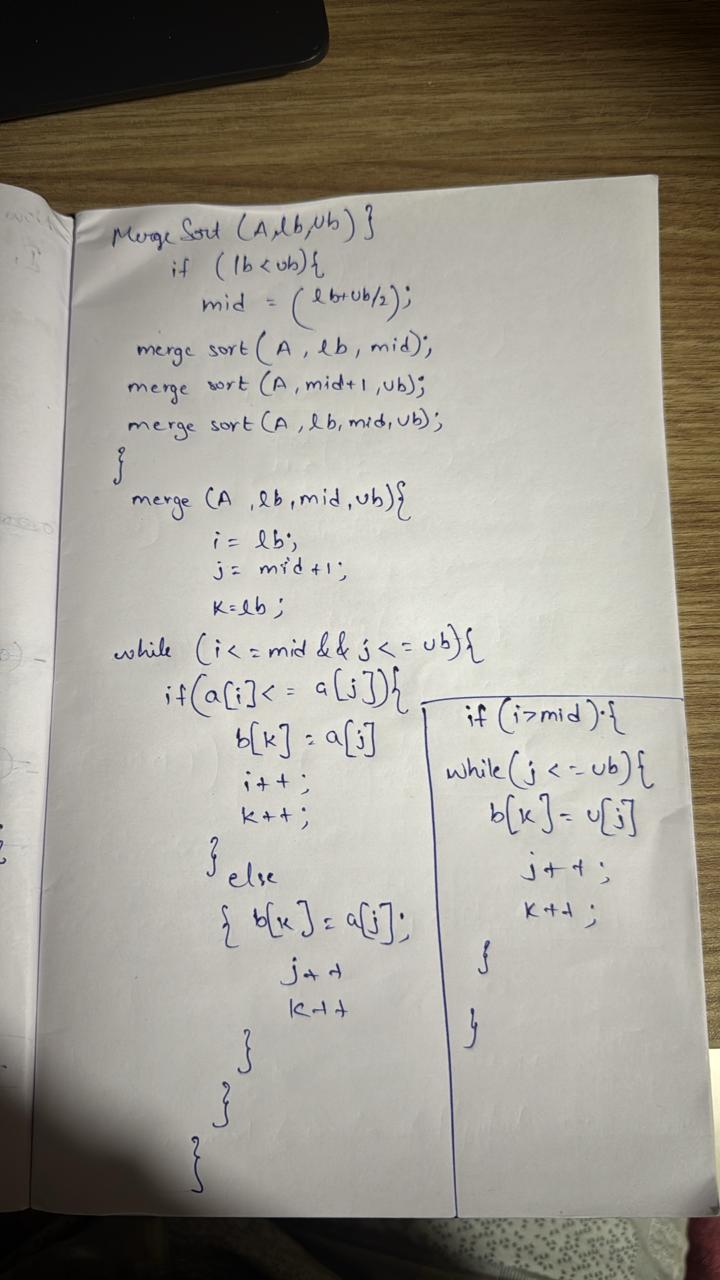 Merge Sort (A,lb,ub) }
if (lb<ub){
mid = (lb+ub/2);
merge sort(A, lb, mid);
merge sort (A, mid+1, ub);
merge sort (A, lb, mid, ub);
}
merge (A, lb, mid, ub){
i = lb;
j = mid+1;
k=lb;
while (i<=mid && j<=ub){
if(a[i]<= a[j]){
b[k] = a[j]
i++;
k++;
} else
{ b[k] = a[j];
j++
k++
}
}
}
if (i>mid) {
while (j<=ub){
b[k] = u[j]
j++;
k++;
}
}